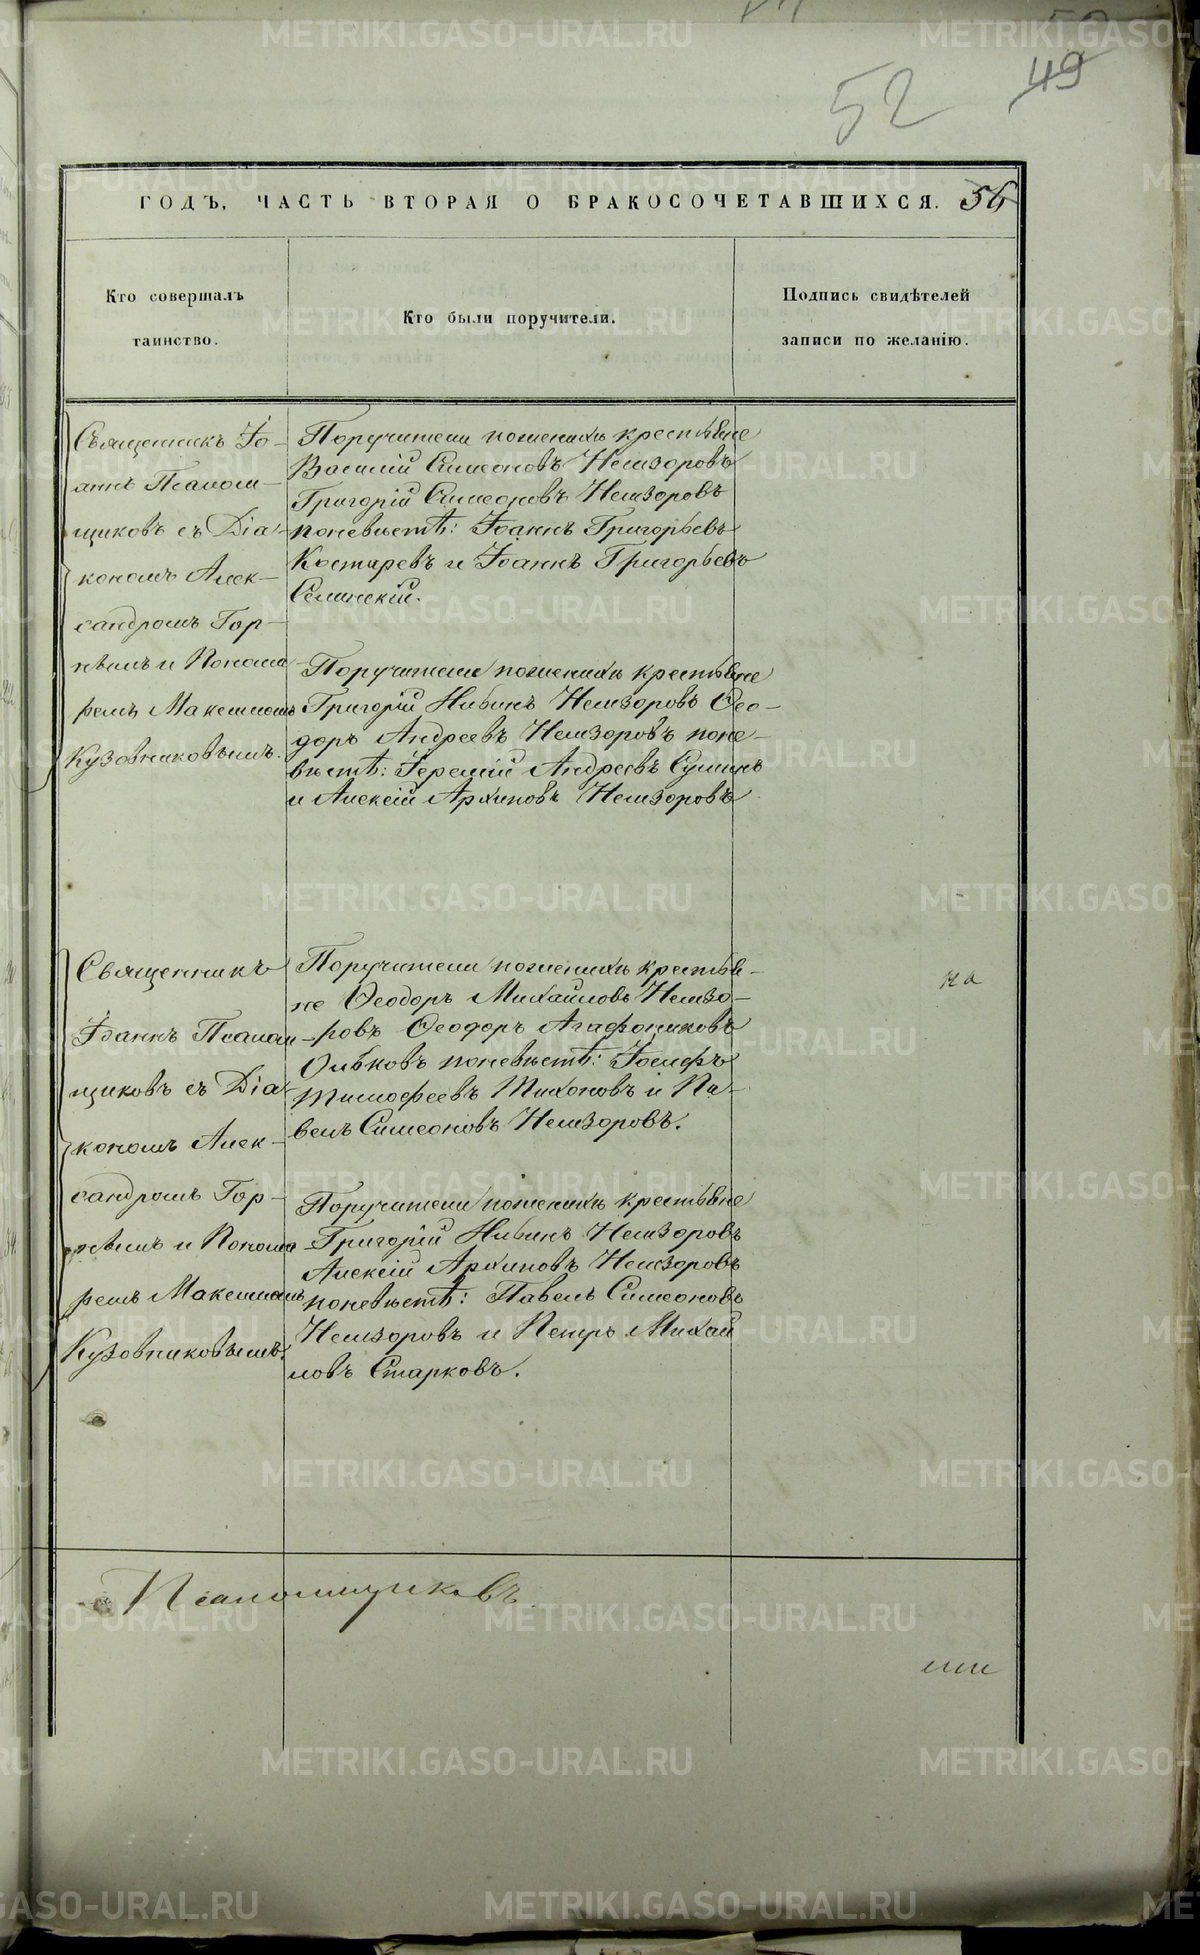 52
49
ГОДЪ, ЧАСТЬ ВТОРАЯ О БРАКОСОЧЕТАВШИХСЯ. 56
Кто совершалъ
таинство.
Кто были поручители.
Подпись свидѣтелей
записи по желанію.
Священникъ Іо-
аннъ Псалом-
щиковъ съ Діа-
кономъ Алек-
сандромъ Гор-
нымъ и Понома
ремъ Максимомъ
Кузовниковымъ.
Поручители по женихѣ крестьяне
Василій Симеоновъ Немзоровъ
Григорій Симеоновъ Немзоровъ
по невѣстѣ: Іоаннъ Григорьевъ
Костаревъ и Іоаннъ Григорьевъ
Селинскій.
Поручители по женихѣ крестьяне
Григорій Немзоровъ Ѳео-
доръ Андреевъ Немзоровъ по не-
вѣстѣ: Іеремій Андреевъ
и Алексій Архиповъ Немзоровъ
Священникъ
Іоаннъ Псалом
щиковъ съ Діа-
кономъ Алек-
сандромъ Гор-
нымъ и Понома
ремъ Максимомъ
Кузовниковымъ.
Поручители по женихѣ крестья-
не Ѳеодоръ Михайловъ Немзо-
ровъ Ѳеодоръ Агафониковъ
по невѣстѣ: Іосифъ
Тимофеевъ Тихоновъ и Па-
велъ Симеоновъ Немзоровъ.
Поручители по женихѣ крестьяне
Григорій Немзоровъ
Алексій Архиповъ Немзоровъ
по невѣстѣ: Павелъ Симеоновъ
Немзоровъ и Петръ Михай
ловъ Старковъ.
на
Псаломщиковъ.
METRIKI.GASO-URAL.RU